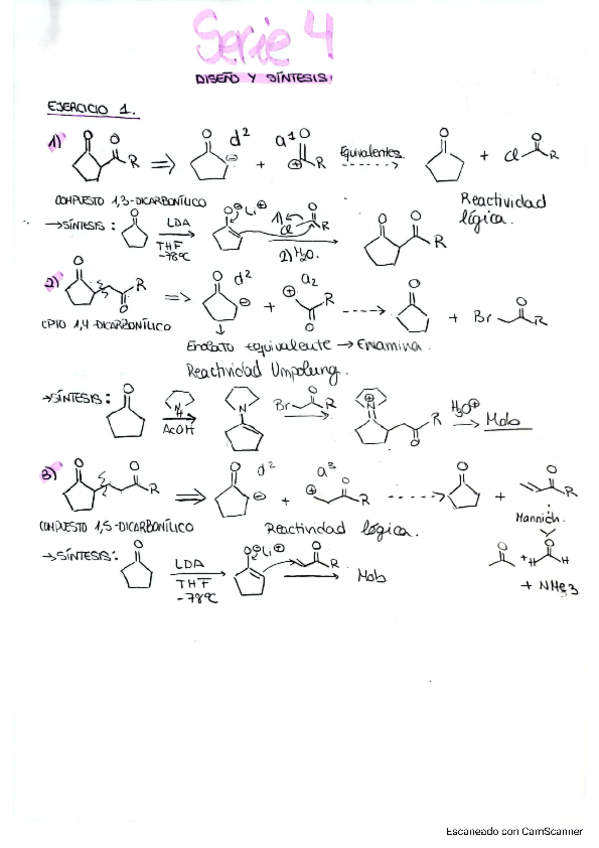 Serie 4
DISEÑO Y SÍNTESIS
EJERCICIO 1.
1) O O R ⇒ O d² ⊖ + a¹ O ⊕ R Equivalentes O + Cl O R
COMPUESTO 1,3-DICARBONÍLICO
Reactividad lógica.
→ SÍNTESIS: O LDA THF -78ºC O⊖ Li⊕ 1) Cl O R 2) H₂O. O O R
2) O R O ⇒ O d² ⊖ + a₂ ⊕ R O O + Br O R
CPTO 1,4-DICARBONÍLICO
Enolato equivalente → Enamina.
Reactividad Umpolung.
→ SÍNTESIS: O N H AcOH N Br O R N⊕ R O H₃O⊕ Mob
3) O O R ⇒ O d² ⊖ + a³ ⊕ O R O + O R
COMPUESTO 1,5-DICARBONÍLICO
Reactividad lógica.
Mannich.
→ SÍNTESIS: O LDA THF -78ºC O⊖ Li⊕ O R Mob
O + H O H
+ NMe₃
Escaneado con CamScanner